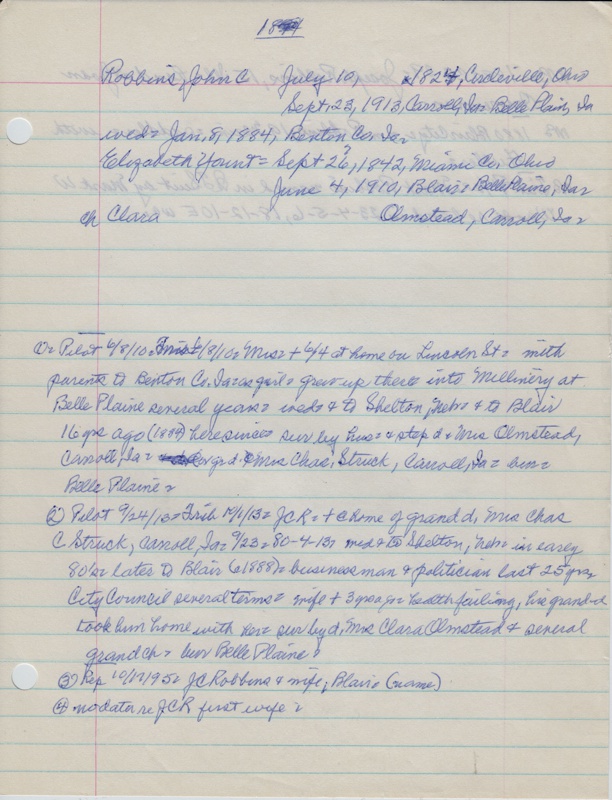 Robbins, John C July 10, 1824, Circleville, Ohio
Sept, 23, 1913, Carroll, Ia= Belle Plain, Ia
wed= Jan, 8, 1884, Benton Co, Ia=
Elizabeth Yount= Sept 26, 1842, Miami Co, Ohio
June 4, 1910, Blair= Belle Plaine, Ia=
ch Clara Olmstead, Carroll, Ia=
1= Pilot 6/8/10= 6/8/10= Mrs= + 6/4 at home on Lincoln St= with
parents to Benton Co, Ia= as girl= grew up there= into Millinery at
Belle Plaine several years= wed= + to Shelton, Neb= + to Blair
16 yrs ago (1884) here since= sur by hus= + step d= Mrs Olmstead,
Carroll, Ia= gr d Mrs Chas, Struck, Carroll, Ia= bur=
Belle Plaine=
2) Pilot 9/24/13= Trib 10/1/13= JCR= + @ home of grand d, Mrs Chas
C Struck, Carroll, Ia= 9/23= 80-4-13= wed + to Shelton, Neb= in early
80's= later to Blair (1888)= business man + politician last 25 yrs=
City Council several terms= wife + 3 yrs ago= health failing, his grand-d
took him home with her= sur by d, Mrs Clara Olmstead + several
grand ch= bur Belle Plaine=
3) Rep 10/17/95= JC Robbins + wife, Blair= (name)
4= no data re JCR first wife=